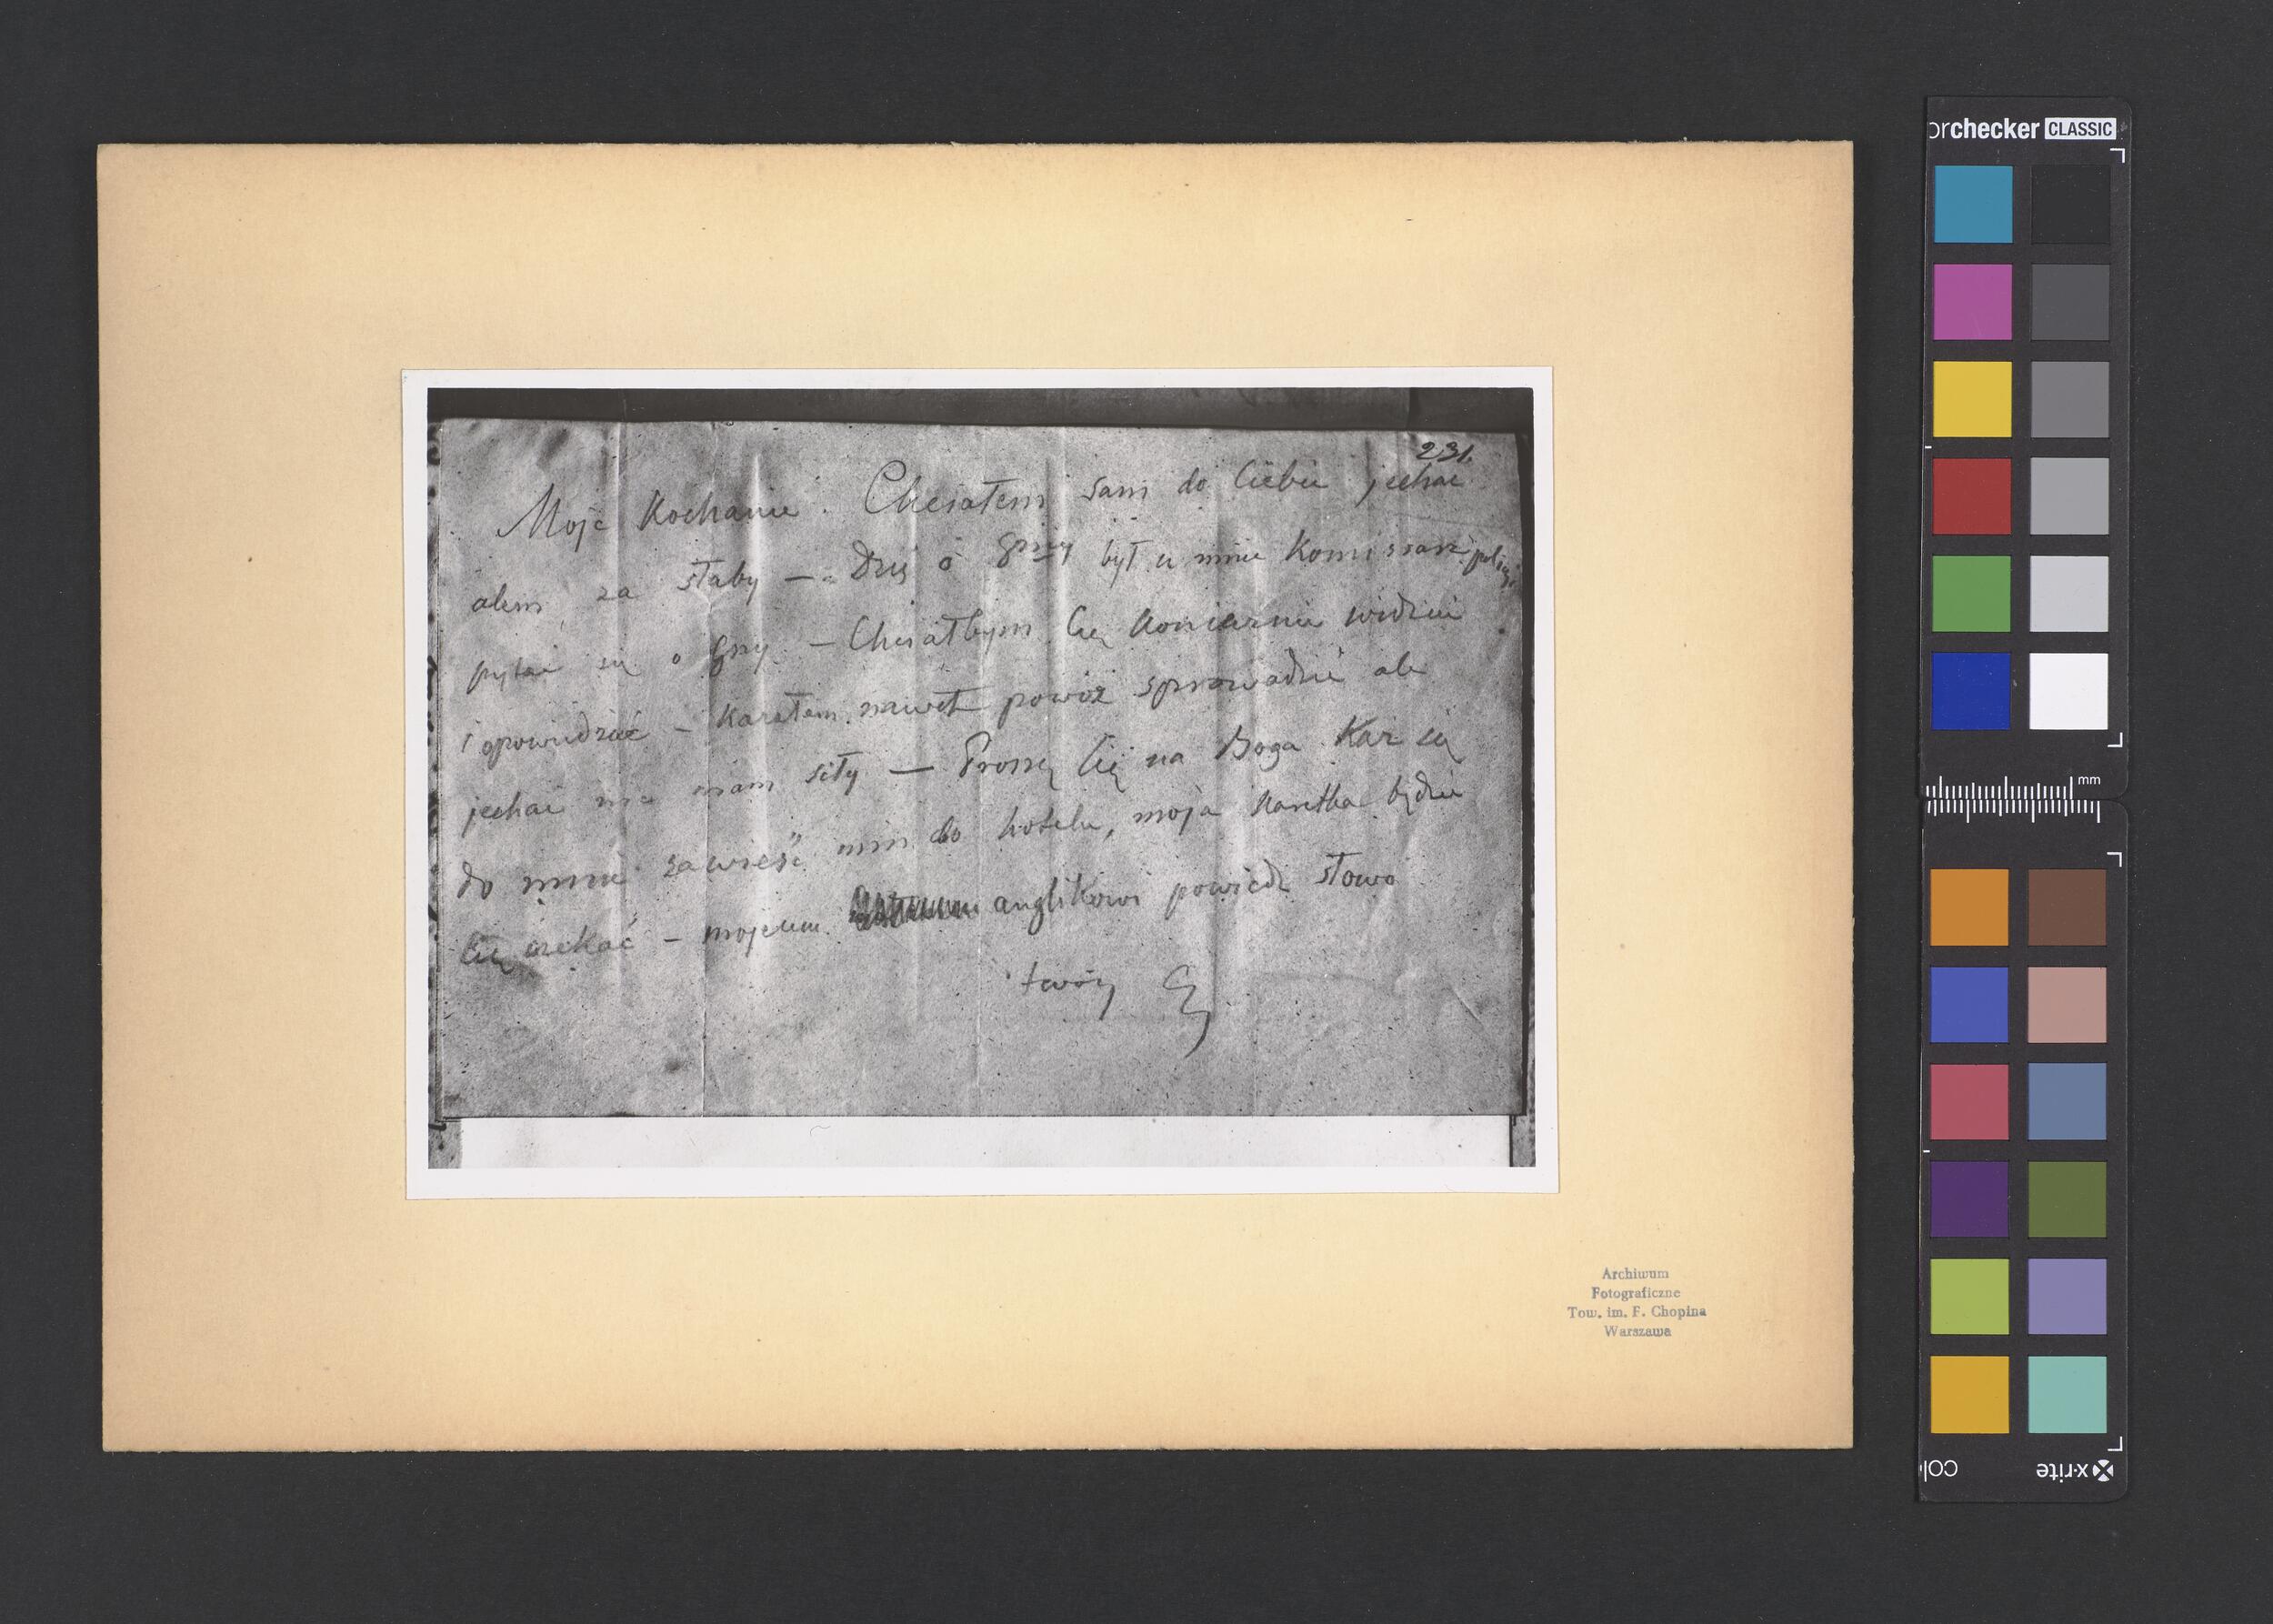 231.
Moje Kochanie. Chciałem sam do Ciebie jechać
alem za słaby — Dziś o był u mnie Komissarz policyi
pytać się o — Chciałbym Cię koniecznie widzieć
i opowiedzieć – Kazałem nawet powóz sprowadzić ale
jechać nie mam siły — Proszę Cię na Boga Każ się
do mnie zawieść nim do hotelu, moja Karetka będzie
Cię czekać – mojemu anglikowi powiedz słowo
twój
Archiwum
Fotograficzne
Tow. im. F. Chopina
Warszawa
orchecker CLASSIC
mm
x-rite
col